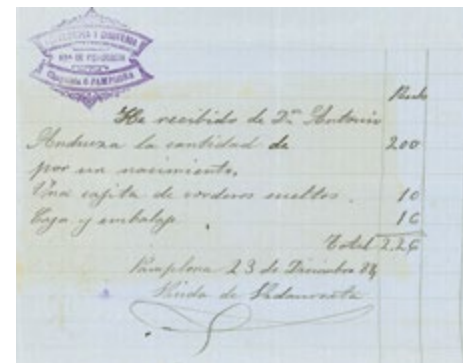 PAMPLONA
Reales
He recibido de Dn. Antonio
la cantidad de 200
por un nacimiento,
Una cajita de corderos sueltos. 10
Caja y embalaje. 16
Total 226
Pamplona 23 de Diciembre 84
Viuda de